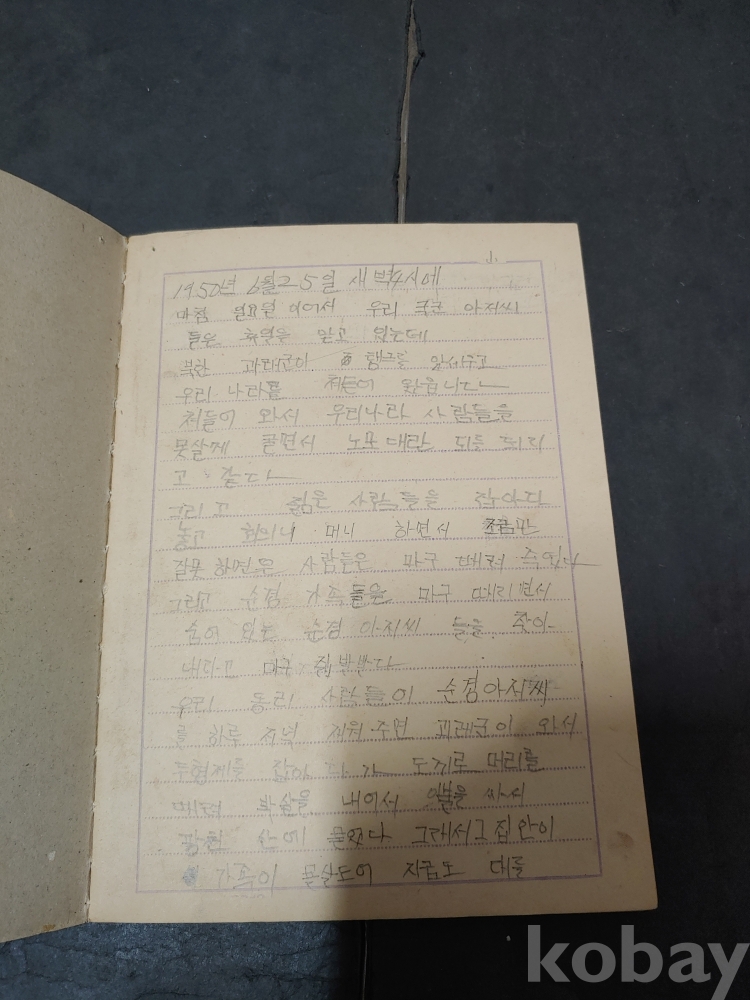 1950년 6월 25일 새벽4시에
마침 이어서 우리 국군 아저씨
들은 휴일을 맏고 있는데
북한 괴래군이 탱크를 앞세우고
우리 나라를 처들어 왔읍니다
처들어 와서 우리나라 사람들을
못살게 굴면서 노무대란 되는 되리
고 갔다
그리고 젊은 사람들을 잡아다
놓고 회의니 머니 하면서 조금만
잘못 하면은 사람들은 마구 때려 죽였다
그리고 순경 가족들은 마구 때리면서
숨어 있는 순경 아저씨 들을 찾아
내라고 마구 짓밟았다
우리 동리 사람들이 순경아저씨
를 하루 저녁 재워 주면 괴래군이 와서
두형제를 잡아 다가 도끼로 머리를
때려 박살을 내어서 싸서
산에 묻었다 그래서 그 집안이
가족이 몰살되어 지금도 대를
kobay